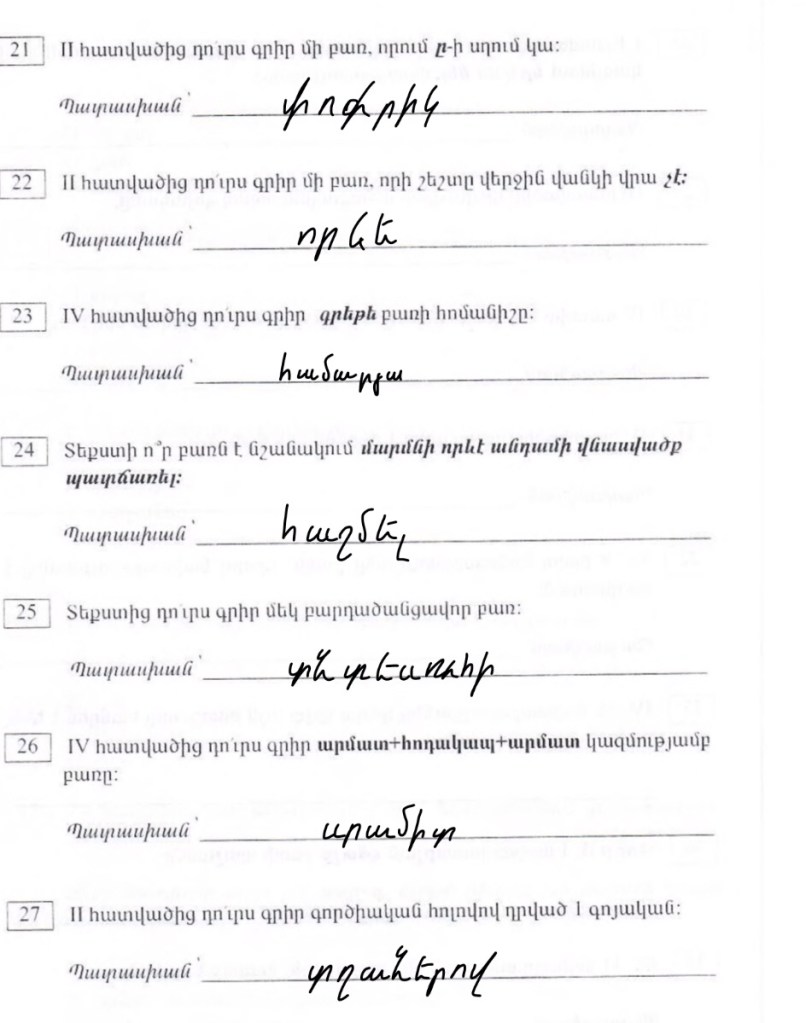 21 II հատվածից դո՛ւրս գրիր մի բառ, որում ը-ի սղում կա:
Պատասխան՝ փոքրիկ
22 II հատվածից դո՛ւրս գրիր մի բառ, որի շեշտը վերջին վանկի վրա չէ:
Պատասխան՝ որևե
23 IV հատվածից դո՛ւրս գրիր գրեթե բառի հոմանիշը:
Պատասխան՝ համարյա
24 Տեքստի ո՞ր բառն է նշանակում մարմնի որևէ անդամի վնասվածք
պատճառել:
Պատասխան՝ հաշմել
25 Տեքստից դո՛ւրս գրիր մեկ բարդածանցավոր բառ:
Պատասխան՝
26 IV հատվածից դո՛ւրս գրիր արմատ+հոդակապ+արմատ կազմությամբ
բառը:
Պատասխան՝ արամիտ
27 II հատվածից դո՛ւրս գրիր գործիական հոլովով դրված 1 գոյական:
Պատասխան՝ տղաներով